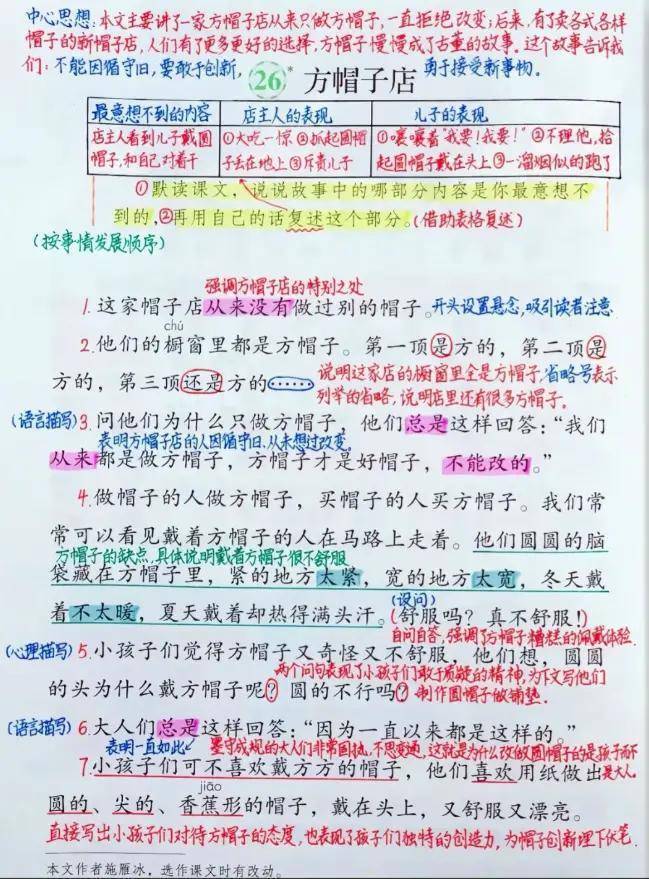 中心思想:本文主要讲了一家方帽子店从来只做方帽子,一直拒绝改变;后来,有了卖各式各样
帽子的新帽子店,人们有了更多更好的选择,方帽子慢慢成了古董的故事。这个故事告诉我
们:不能因循守旧,要敢于创新,勇于接受新事物。
26* 方帽子店
最意想不到的内容 店主人的表现 儿子的表现
店主人看到儿子戴圆 ①大吃一惊 ②抓起圆帽 ①嚷嚷着“我要!我要!” ②不理他,拾
帽子,和自己对着干 子丢在地上 ③斥责儿子 起圆帽子戴在头上 ③一溜烟似的跑了
①默读课文,说说故事中的哪部分内容是你最意想不
到的,②再用自己的话复述这个部分。(借助表格复述)
(按事情发展顺序)
强调方帽子店的特别之处
1.这家帽子店从来没有做过别的帽子。开头设置悬念,吸引读者注意.
chú
2.他们的橱窗里都是方帽子。第一顶是方的,第二顶是
方的,第三顶还是方的……说明这家店的橱窗里全是方帽子,省略号表示
列举的省略,说明店里还有很多方帽子。
(语言描写)3.问他们为什么只做方帽子,他们总是这样回答:“我们
表明方帽子店的人因循守旧.从未想过改变.
从来都是做方帽子,方帽子才是好帽子,不能改的。”
4.做帽子的人做方帽子,买帽子的人买方帽子。我们常
常可以看见戴着方帽子的人在马路上走着。他们圆圆的脑
方帽子的缺点,具体说明戴着方帽子很不舒服
袋藏在方帽子里,紧的地方太紧,宽的地方太宽,冬天戴
着不太暖,夏天戴着却热得满头汗。(舒服吗?真不舒服!)
(设问)
自问自答,强调了方帽子糟糕的佩戴体验.
(心理描写)5.小孩子们觉得方帽子又奇怪又不舒服,他们想,圆圆
两个问句表现了小孩子们敢于质疑的精神,为下文写他们
的头为什么戴方帽子呢?圆的不行吗?制作圆帽子做铺垫.
(语言描写)6.大人们总是这样回答:“因为一直以来都是这样的。”
表明一直如此 墨守成规的大人们非常固执,不思变通,这就是为什么改做圆帽子的是孩子而不
是大人
7.小孩子们可不喜欢戴方方的帽子,他们喜欢用纸做出
jiāo
圆的、尖的、香蕉形的帽子,戴在头上,又舒服又漂亮。
直接写出小孩子们对待方帽子的态度,也表现了孩子们独特的创造力,为帽子创新埋下伏笔.
本文作者施雁冰,选作课文时有改动。